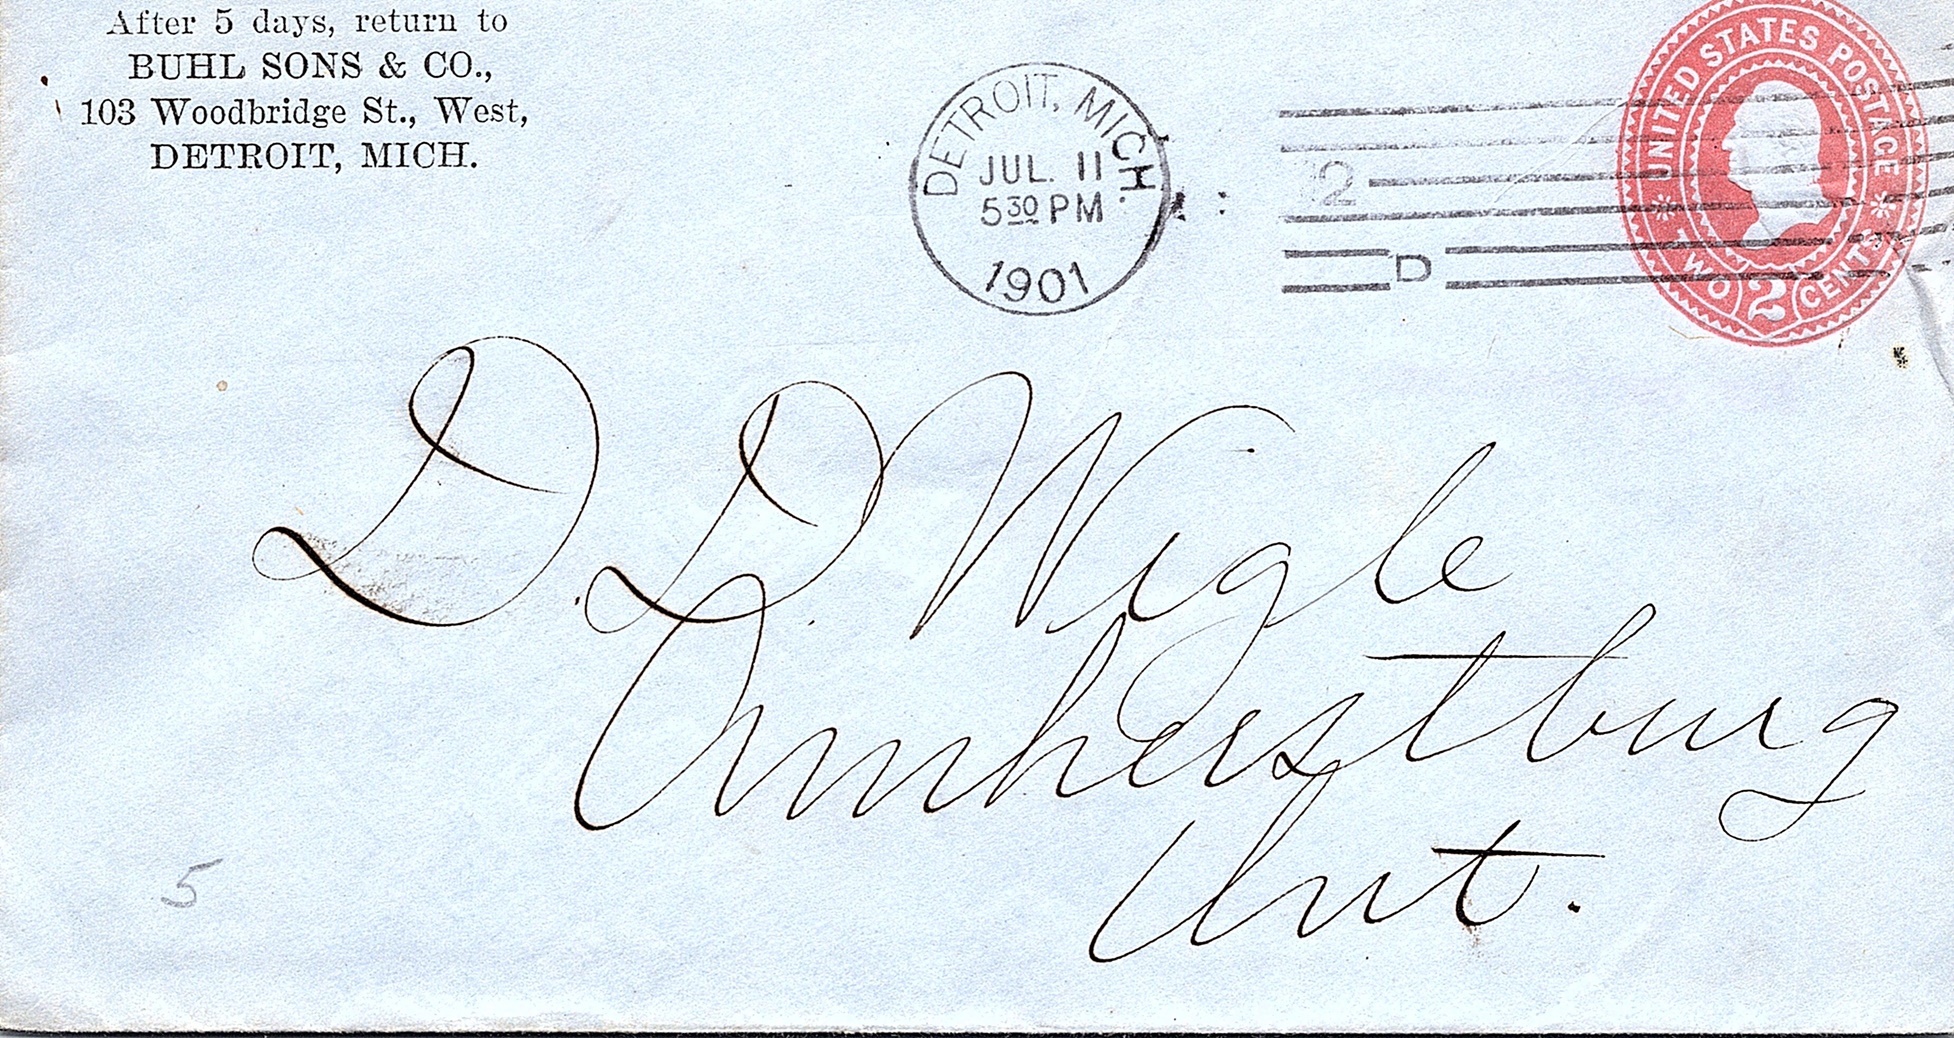 After 5 days, return to
BUHL SONS & CO.,
103 Woodbridge St., West,
DETROIT, MICH.
DETROIT, MICH.
JUL. 11
5 30 PM
1901
2
D
UNITED STATES POSTAGE
TWO 2 CENTS
D. D. Wigle
Amherstburg
Ont.
5